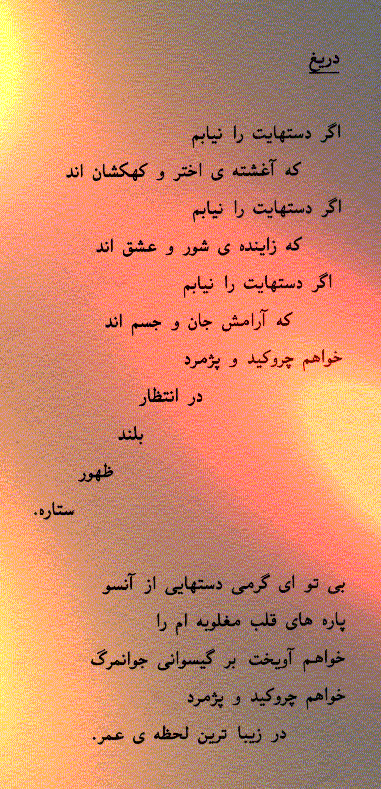 دریغ
اگر دستهایت را نیابم
که آغشته ی اختر و کهکشان اند
اگر دستهایت را نیابم
که زاینده ی شور و عشق اند
اگر دستهایت را نیابم
که آرامش جان و جسم اند
خواهم چروکید و پژمرد
در انتظار
بلند
ظهور
ستاره.
بی تو ای گرمی دستهایی از آنسو
پاره های قلب مغلوبه ام را
خواهم آویخت بر گیسوانی جوانمرگ
خواهم چروکید و پژمرد
در زیبا ترین لحظه ی عمر.